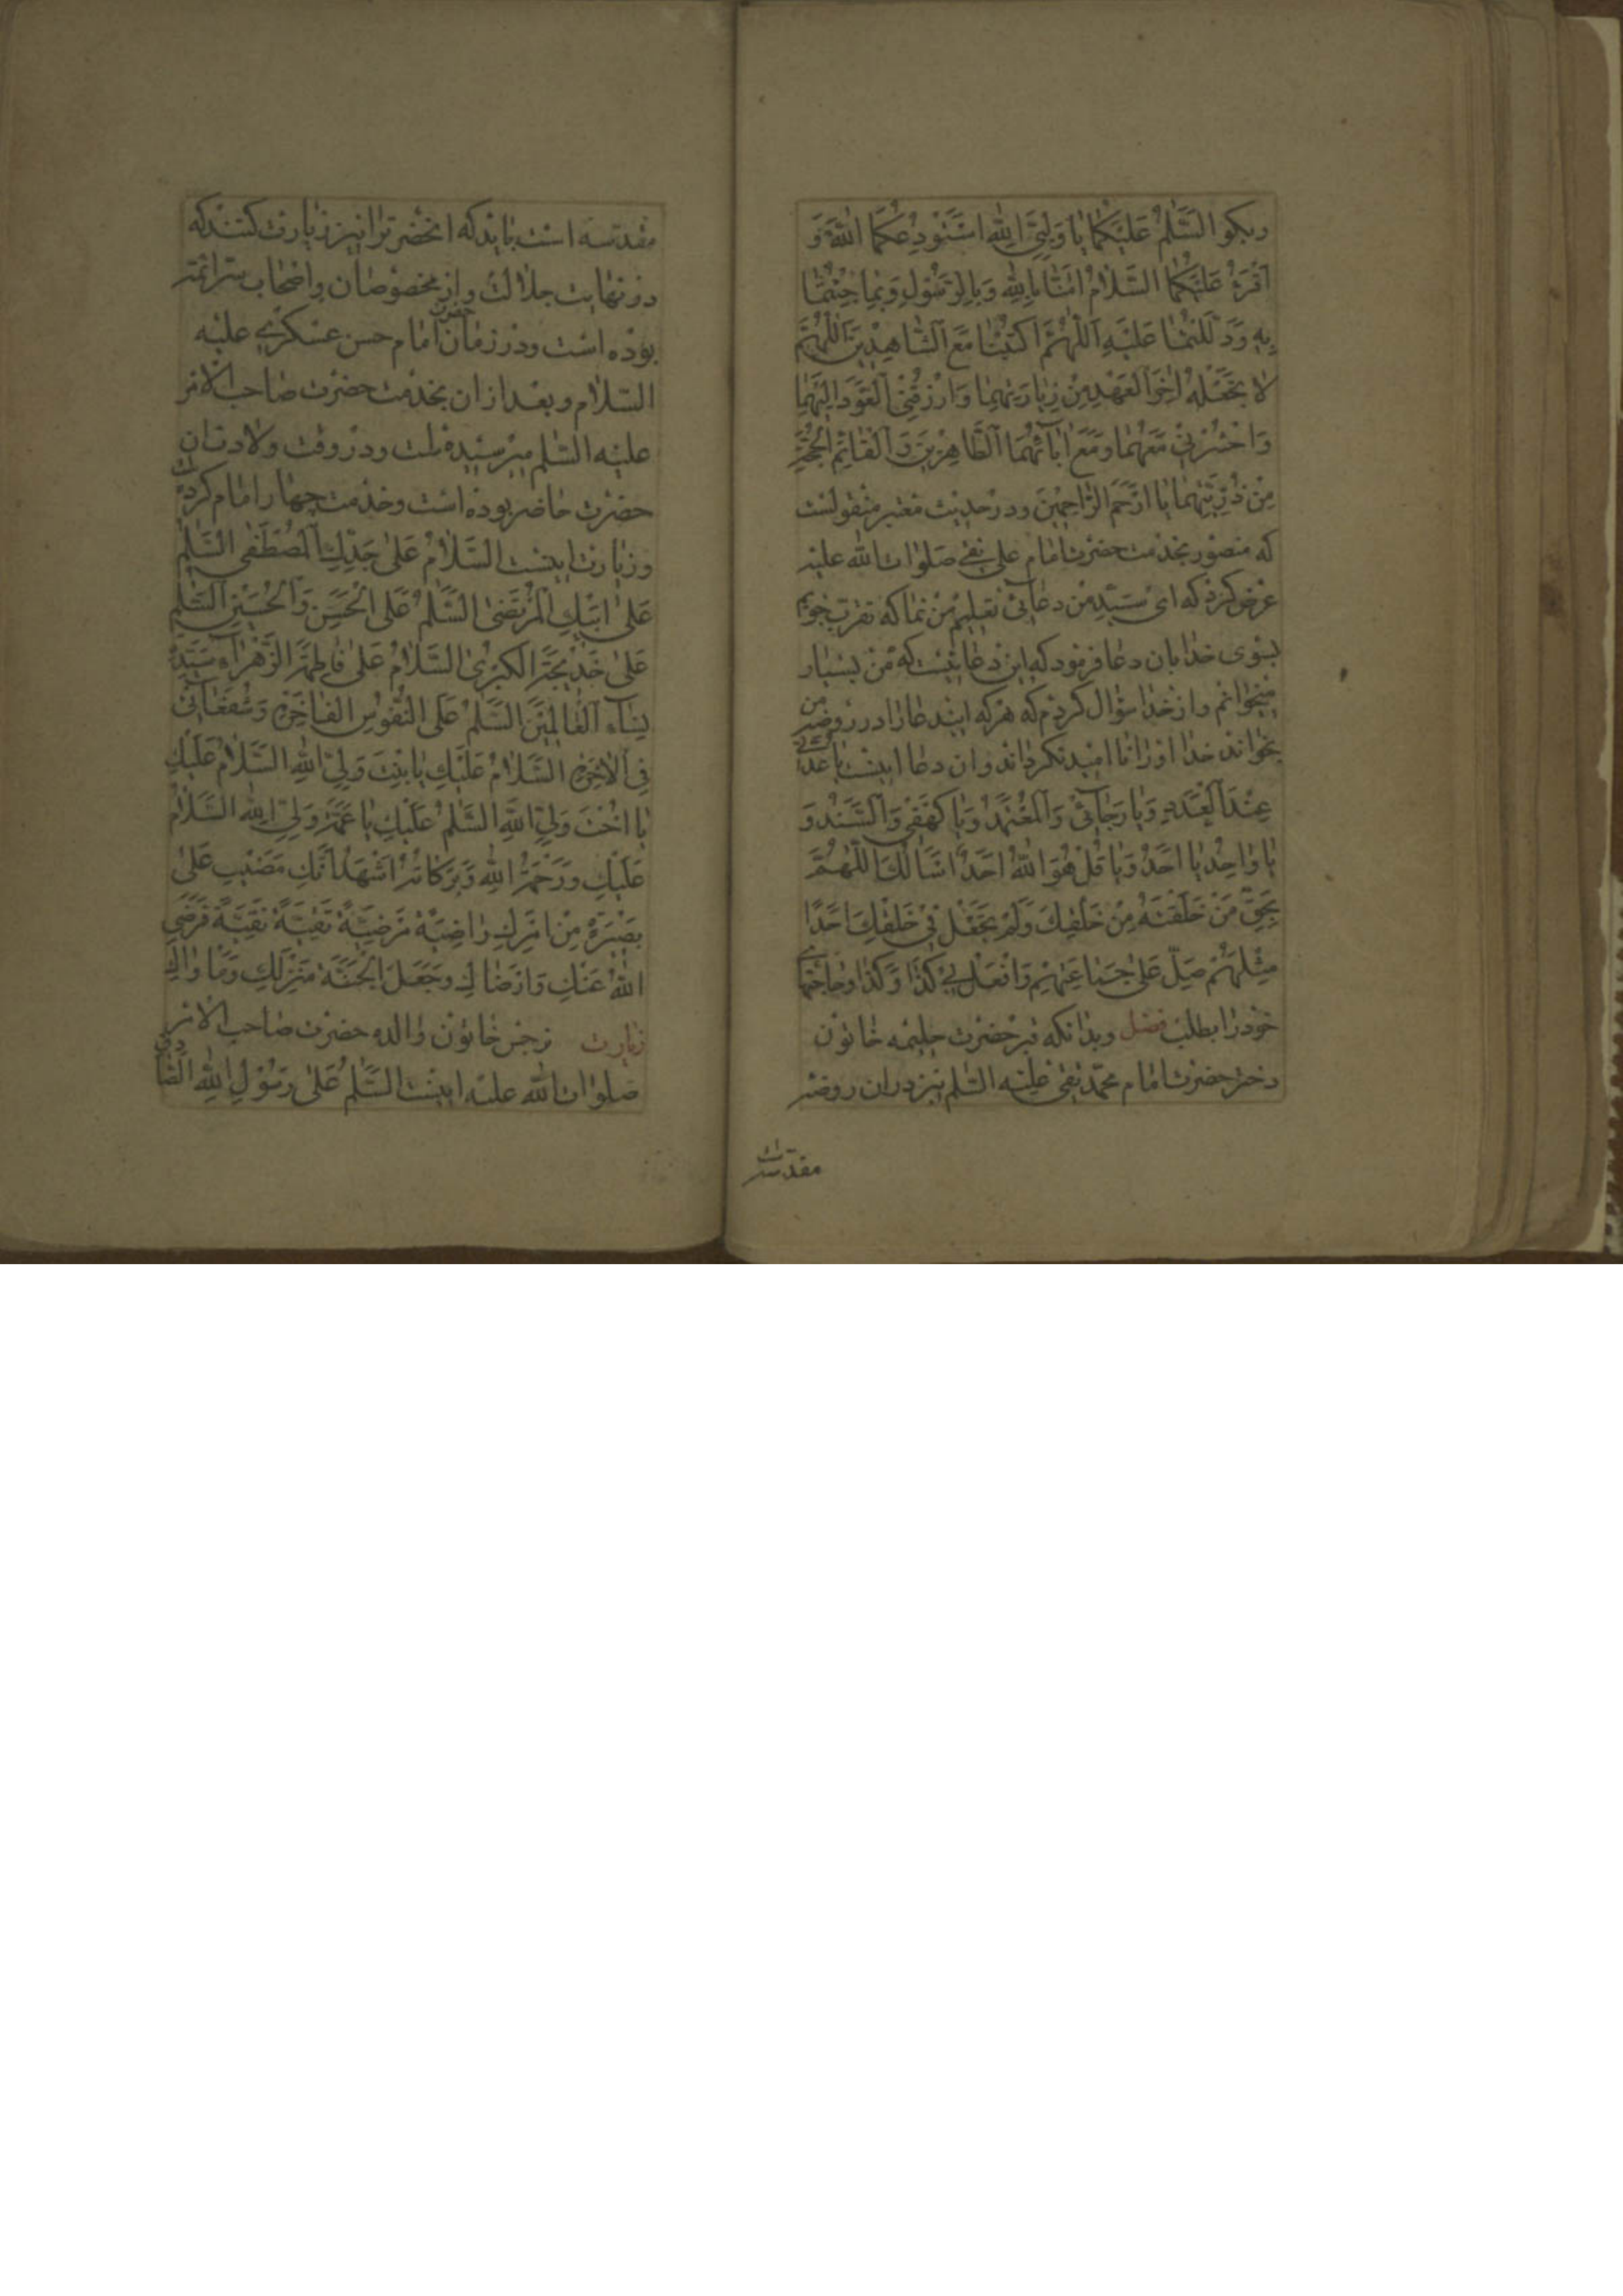 و بگو السَّلٰمُ عَلَيْكُمٰا يٰا وَلِيَّيِ اللّٰهِ اسْتَوْدِعُكُمَا اللّٰهَ وَ
اَقْرَءُ عَلَيْكُمَا السَّلٰامُ امَنّٰا بِاللّٰهِ وَبِالرَّسُوْلِ وَبِمٰا جِئْتُمٰا
بِهِ وَدَلَلْتُمٰا عَلَيْهِ اَللّٰهُمَّ اكْتُبْنٰا مَعَ الشّٰاهِدِيْنَ اَللّٰهُمَّ
لٰا تَجْعَلْهُ اٰخِرَ الْعَهْدِ مِنْ زِيٰارَتِهِمٰا وَارْزُقْنِي الْعَوْدَ اِلَيْهِمٰا
وَاحْشُرْنِيْ مَعَهُمٰا وَمَعَ اٰبٰآئِهِمَا الطّٰاهِرِيْنَ وَالْقٰائِمِ الْحُجَّةِ
مِنْ ذُرِّيَّتِهِمٰا يٰا اَرْحَمَ الرّٰاحِمِيْنَ و در حديث معتبر منقولست
كه منصور بخدمت حضرت امام على نقى صلوات الله عليه
عرض كرد كه اى سيد من دعائى تعليم من نما كه تقرب جويم
بسوى خدا بان دعا فرمود كه اين دعائيست كه من بسيار
ميخوانم و از خدا سؤال كردم كه هركه ايندعا را در روضه من
بخواند خدا او را نااميد نگرداند و ان دعا اينست يٰا عُدَّتِي
عِنْدَ الْعُدَدِ وَيٰا رَجٰآئِيْ وَالْمُعْتَمَدُ وَيٰا كَهْفِيْ وَالسَّنَدُ وَ
يٰا وٰاحِدُ يٰا اَحَدُ وَيٰا قُلْ هُوَ اللّٰهُ اَحَدٌ اَسْاَلُكَ اَللّٰهُمَّ
بِحَقِّ مَنْ خَلَقْتَهُ مِنْ خَلْقِكَ وَلَمْ تَجْعَلْ فِيْ خَلْقِكَ اَحَدًا
مِثْلَهُمْ صَلِّ عَلٰى جَمٰاعَتِهِمْ وَافْعَلْ بِيْ كَذٰا وَكَذٰا و حاجتهاى
خود را بطلب فصل و بدانكه قبر حضرت حليمه خاتون
دختر حضرت امام محمد تقى عليه السلم نيز در ان روضه
مقدسه
مقدسه است بايد كه انحضرترا نيز زيارت كنند كه
در نهايت جلالت و از مخصوصان و اصحاب سر ائمه
بوده است و در زمان حضرت امام حسن عسكرى عليه
السلام و بعد از ان بخدمت حضرت صاحب الامر
عليه السلم ميرسيده است و در وقت ولادت ان
حضرت حاضر بوده است و خدمت چهار امام كرده است
و زيارت اينست السَّلٰامُ عَلٰى جَدِّكِ الْمُصْطَفٰى السَّلٰمُ
عَلٰى اَبِيْكِ الْمُرْتَضٰى السَّلٰمُ عَلَى الْحَسَنِ وَالْحُسَيْنِ السَّلٰمُ
عَلٰى خَدِيْجَةَ الْكُبْرٰى السَّلٰامُ عَلٰى فٰاطِمَةَ الزَّهْرٰآءِ سَيِّدَةِ
نِسٰآءِ الْعٰالَمِيْنَ السَّلٰمُ عَلَى النُّفُوْسِ الْفٰاخِرَةِ وَشُفَعٰآئِيْ
فِي الْاٰخِرَةِ السَّلٰامُ عَلَيْكِ يٰا بِنْتَ وَلِيِّ اللّٰهِ السَّلٰامُ عَلَيْكِ
يٰا اُخْتَ وَلِيِّ اللّٰهِ السَّلٰمُ عَلَيْكِ يٰا عَمَّةَ وَلِيِّ اللّٰهِ السَّلٰامُ
عَلَيْكِ وَرَحْمَةُ اللّٰهِ وَبَرَكٰاتُهُ اَشْهَدُ اَنَّكِ مَضَيْتِ عَلٰى
بَصِيْرَةٍ مِنْ اَمْرِكِ رٰاضِيَةً مَرْضِيَّةً تَقِيَّةً نَقِيَّةً فَرَضِيَ
اللّٰهُ عَنْكِ وَاَرْضٰاكِ وَجَعَلَ الْجَنَّةَ مَنْزِلَكِ وَمَاْوٰاكِ
زيارت نرجس خاتون والده حضرت صاحب الامر
صلوات الله عليه اينست السَّلٰمُ عَلٰى رَسُوْلِ اللّٰهِ الصّٰادِقِ